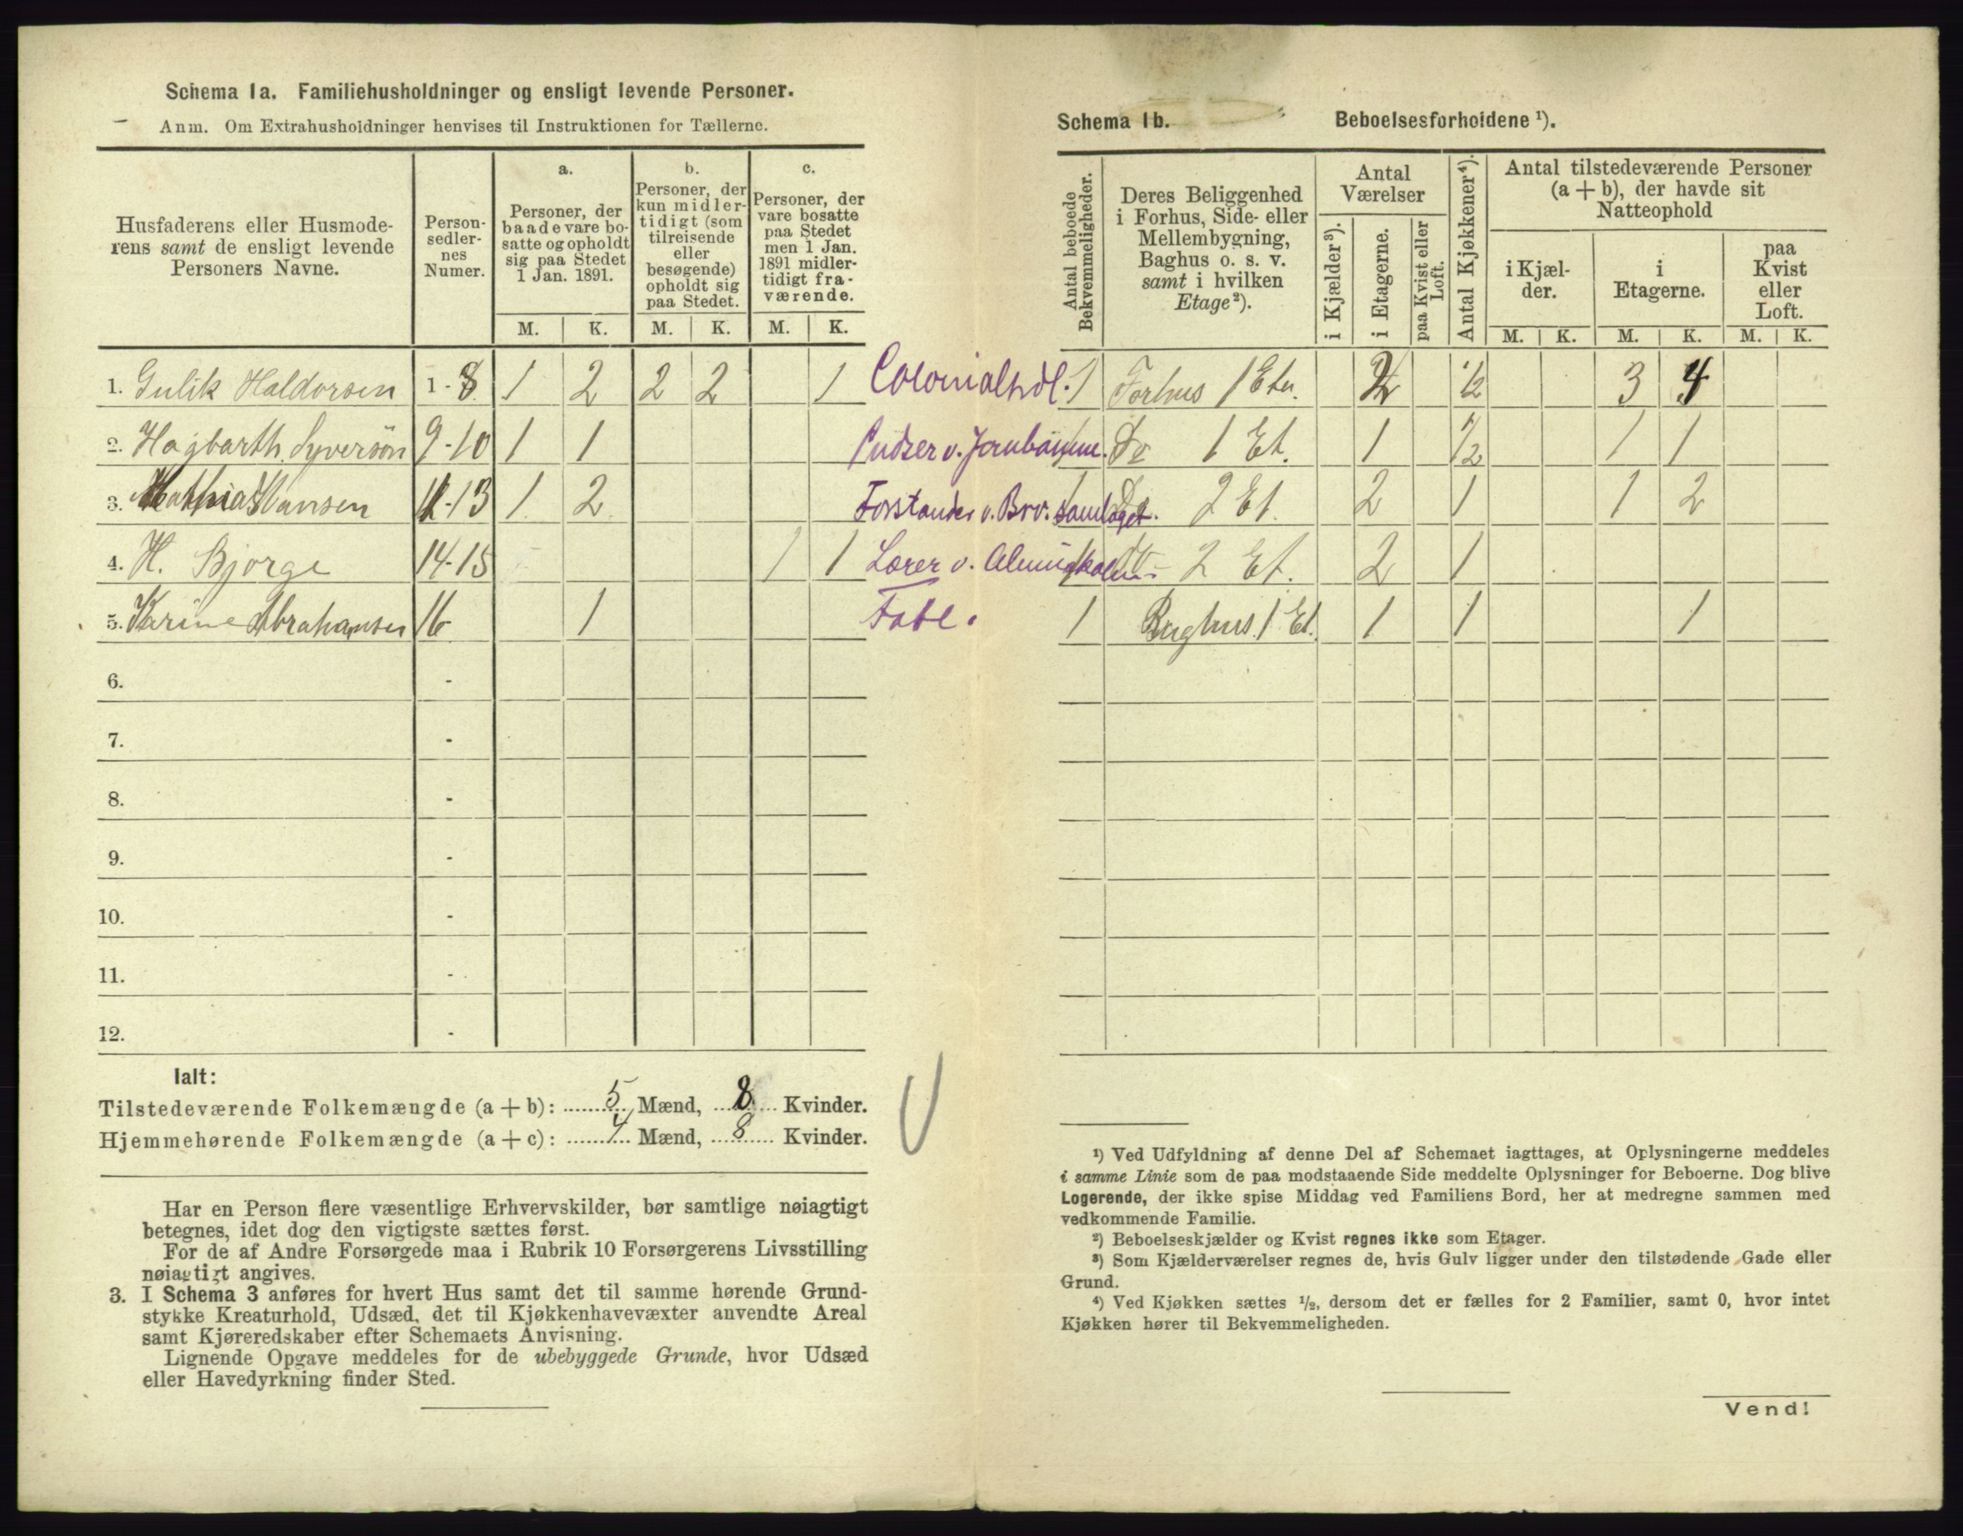 Schema 1a. Familiehusholdninger og ensligt levende Personer.
Anm. Om Extrahusholdninger henvises til Instruktionen for Tællerne.
Husfaderens eller Husmoderens samt de ensligt levende Personers Navne.
Personsedlernes Numer.
a. Personer, der baade vare bosatte og opholdt sig paa Stedet 1 Jan. 1891.
b. Personer, der kun midlertidigt (som tilreisende eller besøgende) opholdt sig paa Stedet.
c. Personer, der vare bosatte paa Stedet men 1 Jan. 1891 midlertidigt fraværende.
M. K. M. K. M. K.
1. Gulik Haldorsen 1-8 1 2 2 2 1 Colonialhdl.
2. Hagbarth Syversøn 9-10 1 1 Pudser v. Jernbanne.
3. Mathias Hansen 11-13 1 2 Forstander v. Brv. samlaget.
4. H. Bjorge 14-15 1 1 Lærer v.
5. Karine Abrahamsen 16 1 Fabe.
6. -
7. -
8. -
9. -
10. -
11. -
12. -
Ialt:
Tilstedeværende Folkemængde (a + b): 5 Mænd, 8 Kvinder.
Hjemmehørende Folkemængde (a + c): 4 Mænd, 8 Kvinder.
Har en Person flere væsentlige Erhvervskilder, bør samtlige nøiagtigt
betegnes, idet dog den vigtigste sættes først.
For de af Andre Forsørgede maa i Rubrik 10 Forsørgerens Livsstilling
nøiagtigt angives.
3. I Schema 3 anføres for hvert Hus samt det til samme hørende Grund-
stykke Kreaturhold, Udsæd, det til Kjøkkenhavevæxter anvendte Areal
samt Kjøreredskaber efter Schemaets Anvisning.
Lignende Opgave meddeles for de ubebyggede Grunde, hvor Udsæd
eller Havedyrkning finder Sted.
Schema 1b. Beboelsesforholdene ¹).
Antal beboede Bekvemmeligheder.
Deres Beliggenhed i Forhus, Side- eller Mellembygning, Baghus o. s. v. samt i hvilken Etage²).
Antal Værelser
i Kjælder³). i Etagerne. paa Kvist eller Loft.
Antal Kjøkkener⁴).
Antal tilstedeværende Personer (a + b), der havde sit Natteophold
i Kjælder. i Etagerne. paa Kvist eller Loft.
M. K. M. K. M. K.
1 Forhus 1 Eta. 2 ½ 3 4
1 Do 1 Et. 1 ½ 1 1
1 Do 2 Et. 2 1 1 2
1 Do 2 Et. 2 1
1 Baghus 1 Et. 1 1 1
¹) Ved Udfyldning af denne Del af Schemaet iagttages, at Oplysningerne meddeles
i samme Linie som de paa modstaaende Side meddelte Oplysninger for Beboerne. Dog blive
Logerende, der ikke spise Middag ved Familiens Bord, her at medregne sammen med
vedkommende Familie.
²) Beboelseskjælder og Kvist regnes ikke som Etager.
³) Som Kjælderværelser regnes de, hvis Gulv ligger under den tilstødende Gade eller
Grund.
⁴) Ved Kjøkken sættes ½, dersom det er fælles for 2 Familier, samt 0, hvor intet
Kjøkken hører til Bekvemmeligheden.
Vend!